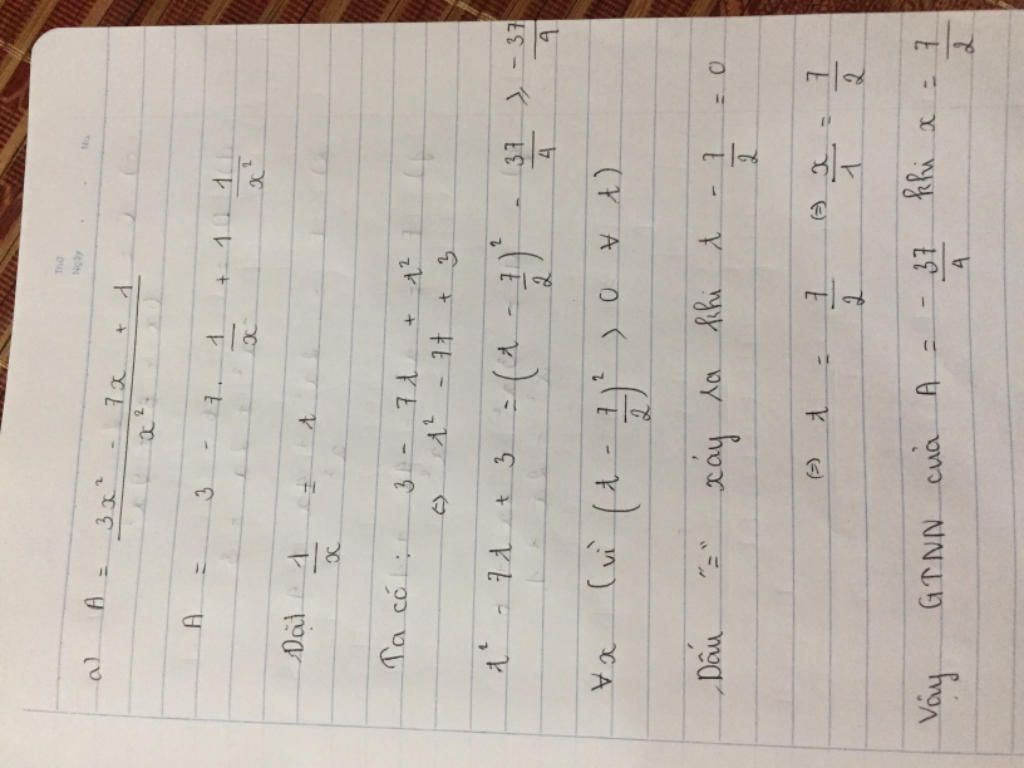 Thứ
Ngày
No.
a) A = \frac{3x² - 7x + 1}{x²}
A = 3 - 7 . \frac{1}{x} + 1 \frac{1}{x²}
Đặt \frac{1}{x} = t
Ta có : 3 - 7t + t²
⇔ t² - 7t + 3
t² - 7t + 3 = (t - \frac{7}{2})² - \frac{37}{4} ≥ - \frac{37}{4}
∀x (vì (t - \frac{7}{2})² > 0 ∀ t)
Dấu "=" xảy ra khi t - \frac{7}{2} = 0
⇔ t = \frac{7}{2} ⇔ \frac{x}{1} = \frac{7}{2}
Vậy GTNN của A = - \frac{37}{4} khi x = \frac{7}{2}